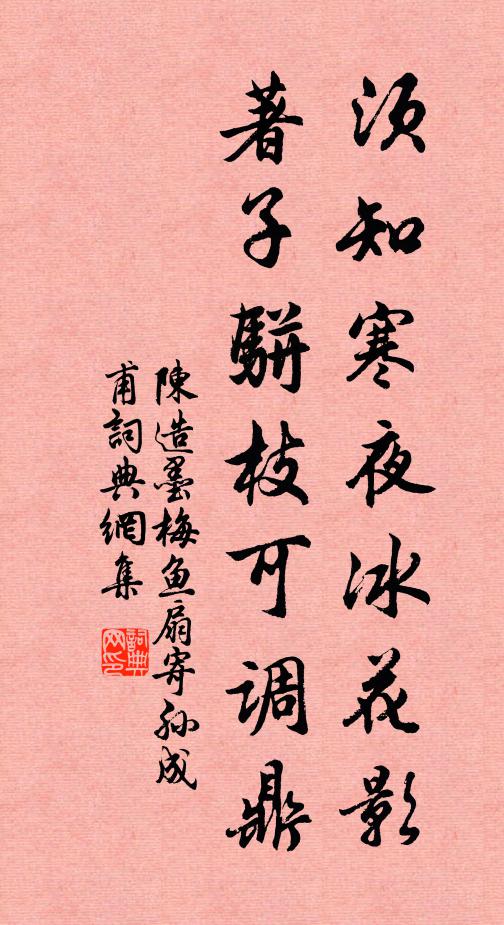 須知寒夜冰花影
著子駢枝可調鼎
陳造墨梅魚扇寄孙成
甫詞典網集
詞典网印